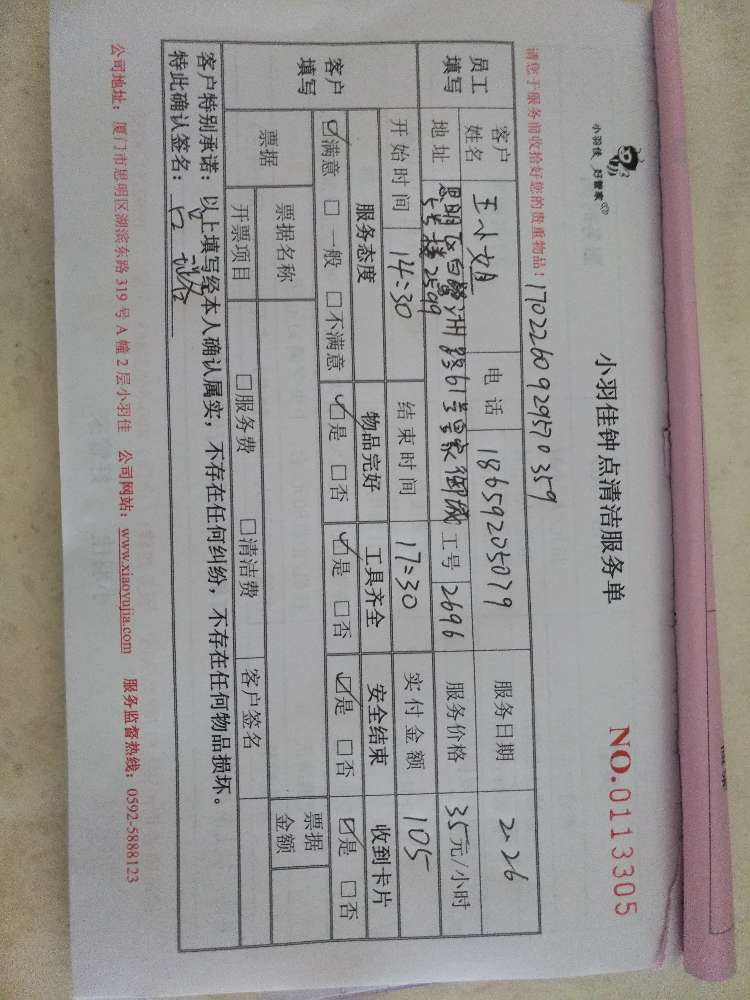 小羽佳 好管家
小羽佳钟点清洁服务单
NO.0113305
请您于服务前收拾好您的贵重物品！
1702260929570359
员工填写 客户姓名 王小姐 电话 18659205079 服务日期 2.26
地址 思明区白鹭洲路61号皇家御城 5号楼2599 工号 2696 服务价格 35元/小时
开始时间 14:30 结束时间 17:30 实付金额 105
客户填写 服务态度 物品完好 工具齐全 安全结束 收到卡片
☑满意 □一般 □不满意 ☑是 □否 ☑是 □否 ☑是 □否 ☑是 □否
票据 票据名称 票据金额
开票项目 □服务费 □清洁费 客户签名
客户特别承诺：以上填写经本人确认属实，不存在任何纠纷，不存在任何物品损坏。
特此确认签名：
公司地址：厦门市思明区湖滨东路319号A幢2层小羽佳 公司网站：www.xiaoyujia.com 服务监督热线：0592-5888123